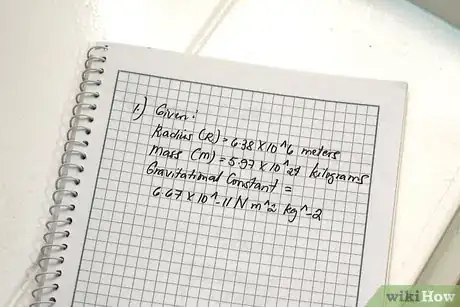 1.) Given:
Radius (R) = 6.38 X 10^6 meters
Mass (M) = 5.97 X 10^24 kilograms
Gravitational Constant =
6.67 X 10^-11 N m^2 kg^-2
wikiHow